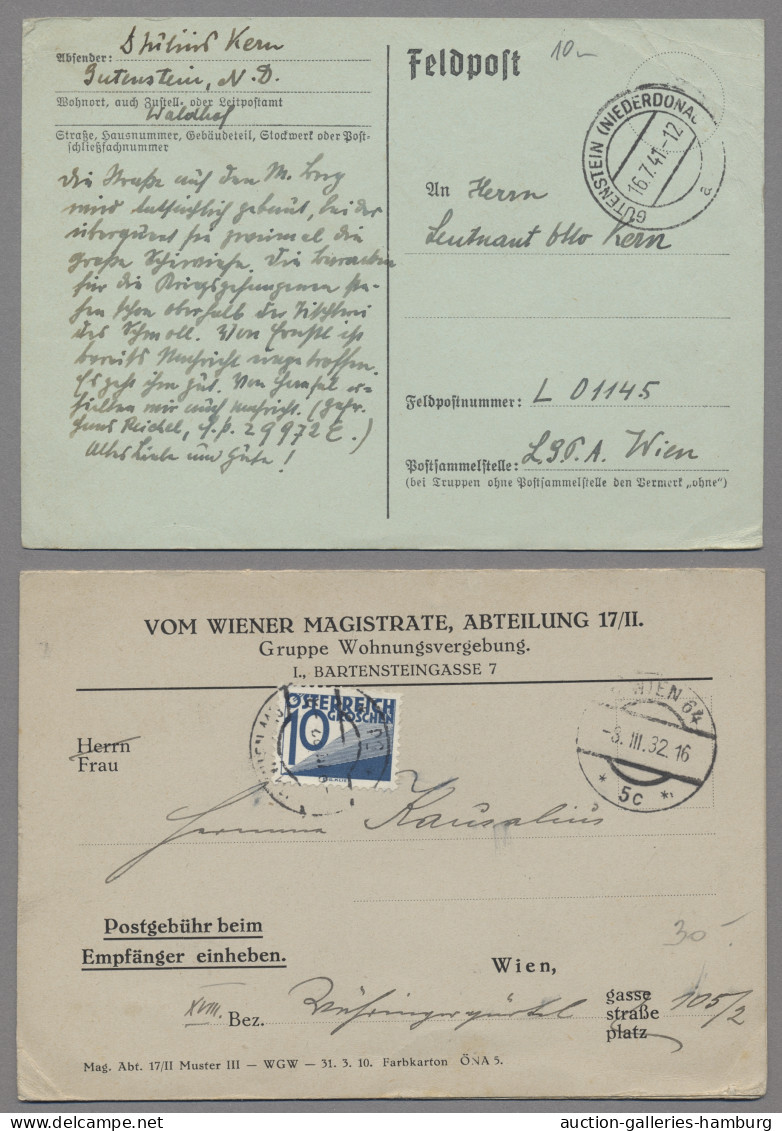 Absender: D Julius Kern
Gutenstein, N. D.
Wohnort, auch Zustell- oder Leitpostamt
Waldhof
Straße, Hausnummer, Gebäudeteil, Stockwerk oder Post-
schließfachnummer
Die Straße auf den M. Berg
wird tatsächlich gebaut, bei der
überquert sie zweimal die
große Schiwiese. Die Baracken
für die Kriegsgefangenen ste-
hen schon oberhalb der Tischlerei
des Schmoll. Von Ernstl ist
bereits Nachricht eingetroffen.
Es geht ihm gut. Von Hansel er-
hielten wir auch Nachricht. (Gefr.
Hans Reichel, F. P. 29972 E.)
Alles Liebe und Gute!
Feldpost
10-
GUTENSTEIN (NIEDERDONAU)
16.7.41.-12
a
An Herrn
Leutnant Otto Kern
Feldpostnummer: L 01145
Postsammelstelle: L.G.P.A. Wien
(bei Truppen ohne Postsammelstelle den Vermerk „ohne")
VOM WIENER MAGISTRATE, ABTEILUNG 17/II.
Gruppe Wohnungsvergebung.
I., BARTENSTEINGASSE 7
ÖSTERREICH
GROSCHEN
10
WIEN 64
-8. III. 32. 16
* 5c *
Herrn
Frau
Hermine Kausalius
Postgebühr beim
Empfänger einheben.
30-
Wien,
XVIII. Bez. Währingergürtel
gasse
straße
platz
105/2
Mag. Abt. 17/II Muster III — WGW — 31. 3. 10. Farbkarton ÖNA 5.
auction-galleries-hamburg